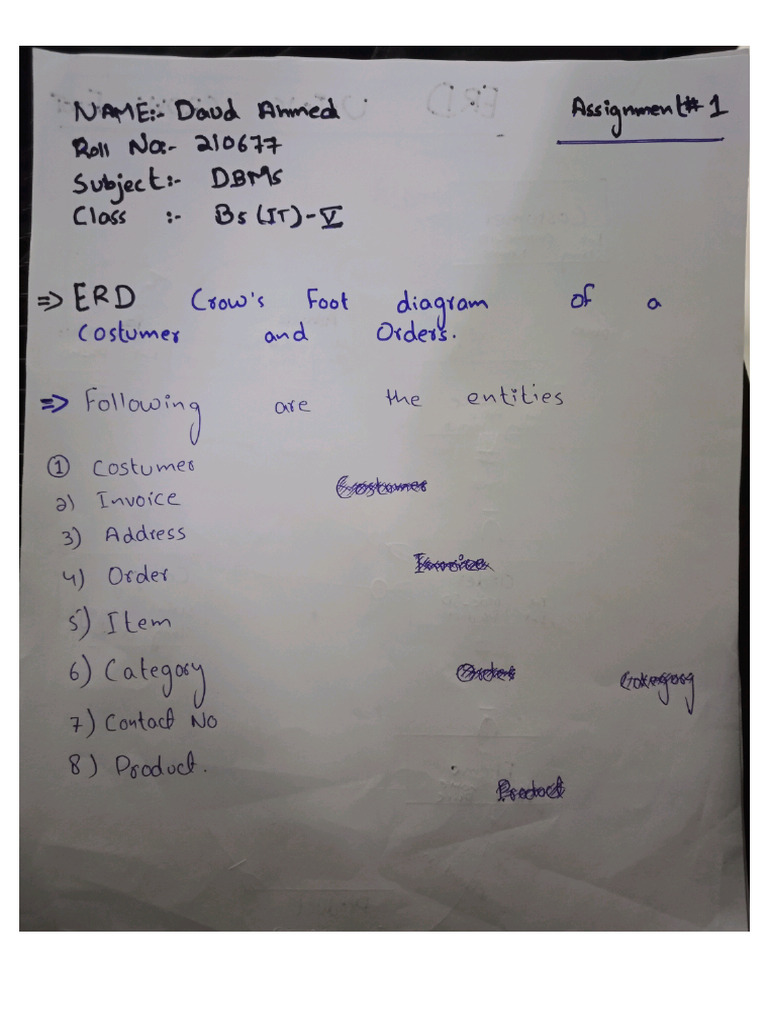 NAME:- Daud Ahmed
Assignment# 1
Roll No:- 210677
Subject:- DBMS
Class :- Bs (IT) - V
=> ERD Crow's Foot diagram of a
Costumer and Orders.
=> Following are the entities
① Costumer
2) Invoice
Costumer
3) Address
Invoice
4) Order
5) Item
6) Category
Order
Category
7) Contact No
8) Product.
Product